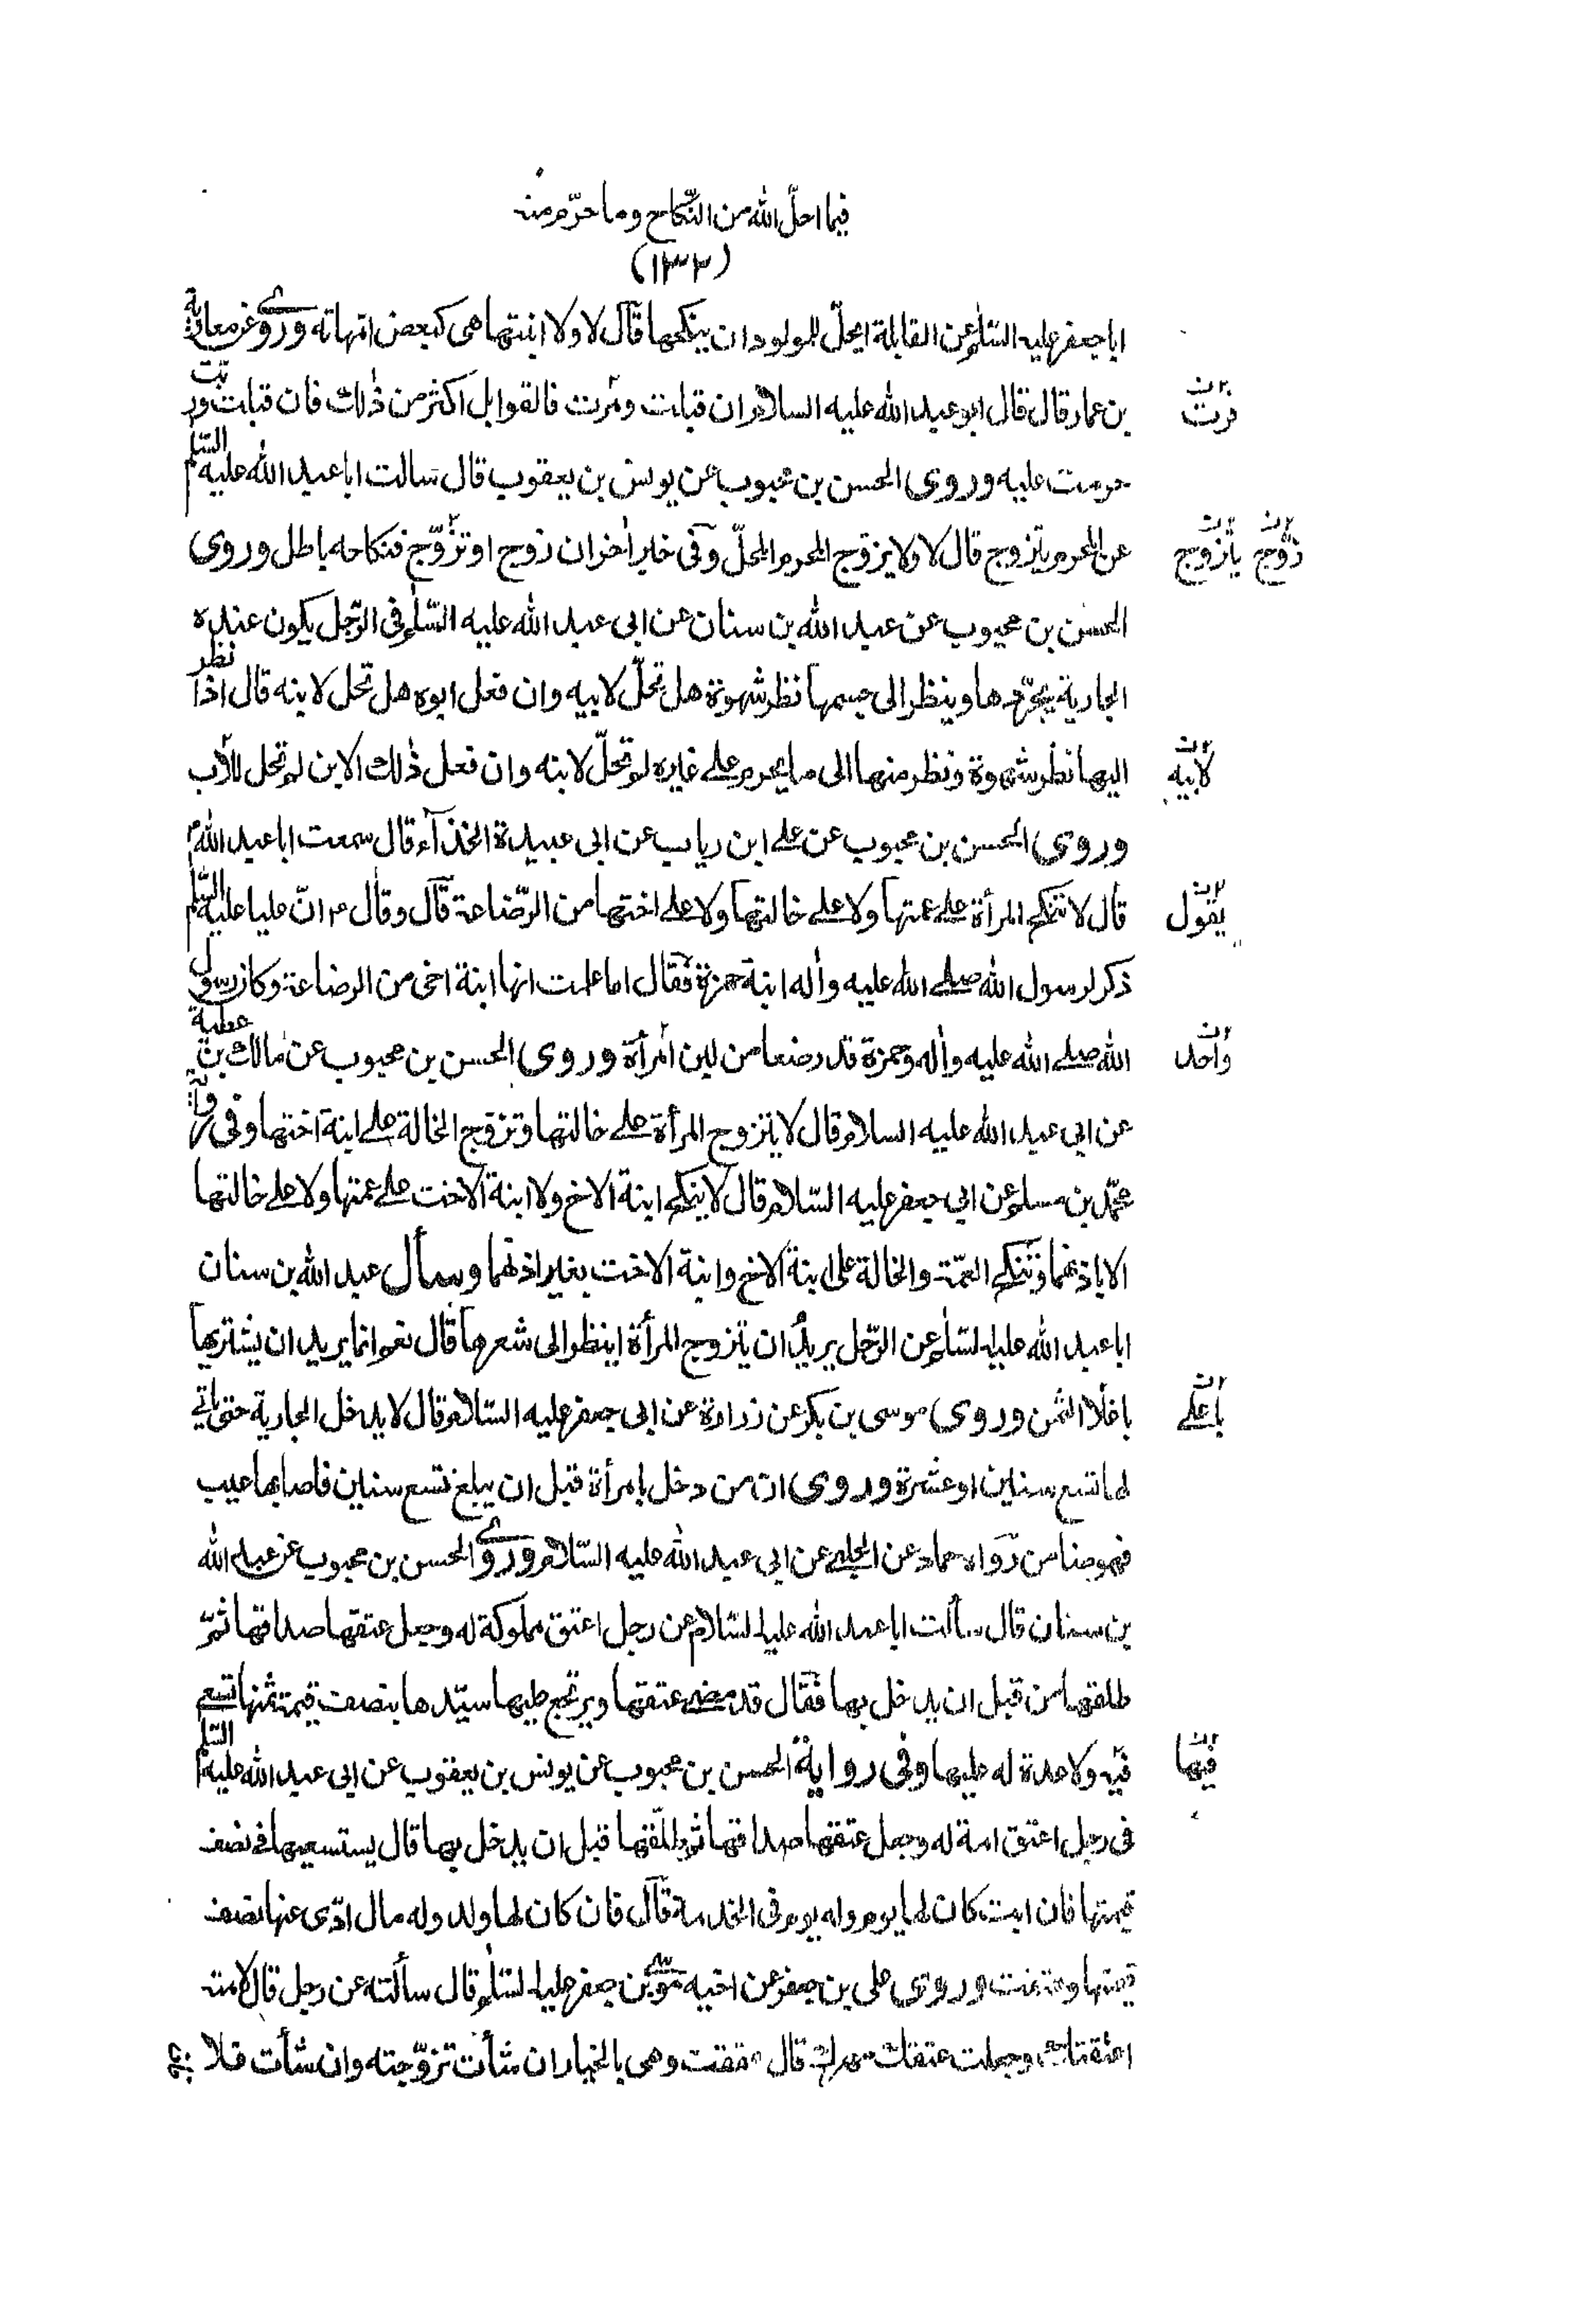 فيما احلّ الله من النّكاح وما حرّم منه
(١٣٣)
ابا جعفر عليه السّلم عن القابلة ايحلّ للمولود ان ينكحها قال لا ولا ابنتها هي كبعض امّهاته وروى عن معاوية
بن عمار قال قال ابو عبد الله عليه السلام ان قبلت ومرّت فالقوابل اكثر من ذلك فان قبلت وربّت
مرت
حرمت عليه وروى الحسن بن محبوب عن يونس بن يعقوب قال سالت ابا عبد الله عليه السّلم
عن المحرم يتزوج قال لا ولا يزوّج المحرم المحلّ وفى خبر اخر ان زوج او تزوّج فنكاحه باطل وروى
زوّج يتزوج
الحسن بن محبوب عن عبد الله بن سنان عن ابى عبد الله عليه السّلم فى الرّجل يكون عنده
الجارية يجرّدها وينظر الى جسمها نظر شهوة هل تحلّ لابيه وان فعل ابوه هل تحل لابنه قال اذا نظر
اليها نظر شهوة ونظر منها الى ما يحرم على غيره لم تحلّ لابنه وان فعل ذلك الابن لم تحل للأب
لابيه
وروى الحسن بن محبوب عن على ابن رياب عن ابى عبيدة الحذّآء قال سمعت ابا عبد الله
قال لا تنكح المرأة على عمتها ولا على خالتها ولا على اختها من الرّضاعة قال وقال ع انّ عليا عليه السّلم
يقول
ذكر لرسول الله صلى الله عليه وآله ابنة حمزة فقال اما علمت انها ابنة اخى من الرضاعة وكان رسول
الله صلى الله عليه وآله وحمزة قد رضعا من لبن امرأة وروى الحسن بن محبوب عن مالك بن عطية
واحد
عن ابي عبد الله عليه السلام قال لا يتزوج المرأة على خالتها وتزوّج الخالة على ابنة اختها وفى رواية
محمّد بن مسلم عن ابي جعفر عليه السّلام قال لا ينكح ابنة الاخ ولا ابنة الاخت على عمتها ولا على خالتها
الا باذنهما وتنكح العمّة والخالة على ابنة الاخ وابنة الاخت بغير اذنهما وسأل عبد الله بن سنان
ابا عبد الله عليه السّلم عن الرّجل يريد ان يتزوج المرأة اينظر الى شعرها قال نعم انما يريد ان يشتريها
باغلا الثمن وروى موسى بن بكر عن زرارة عن ابى جعفر عليه السّلام قال لا يدخل الجارية حتى ياتى
باعلى
لها تسع سنين او عشرة وروى ان من دخل بامرأة قبل ان يبلغ تسع سنين فاصابها عيب
فهو ضامن رواه حماد عن الحلبى عن ابى عبد الله عليه السّلام وروى الحسن بن محبوب عن عبد الله
بن سنان قال سألت ابا عبد الله عليه السّلام عن رجل اعتق مملوكة له وجعل عتقها صداقها ثمّ
طلقها من قبل ان يدخل بها فقال قد مضى عتقها ويرتجع عليها سيّدها بنصف قيمة ثمنها تسعى
فيه ولا عدة له عليها وفى رواية الحسن بن محبوب عن يونس بن يعقوب عن ابى عبد الله عليه السّلم
فيها
فى رجل اعتق امة له وجعل عتقها صداقها ثم طلّقها قبل ان يدخل بها قال يستسعيها فى نصف
قيمتها فان ابت كان لها يوم وله يوم فى الخدمة قال فان كان لها ولد وله مال ادّى عنها نصف
قيمتها وعتقت وروى على بن جعفر عن اخيه موسى بن جعفر عليه السّلم قال سألته عن رجل قال لامته
اعتقتك وجعلت عتقك مهرك قال عتقت وهى بالخيار ان شأت تزوّجته وان شأت فلا